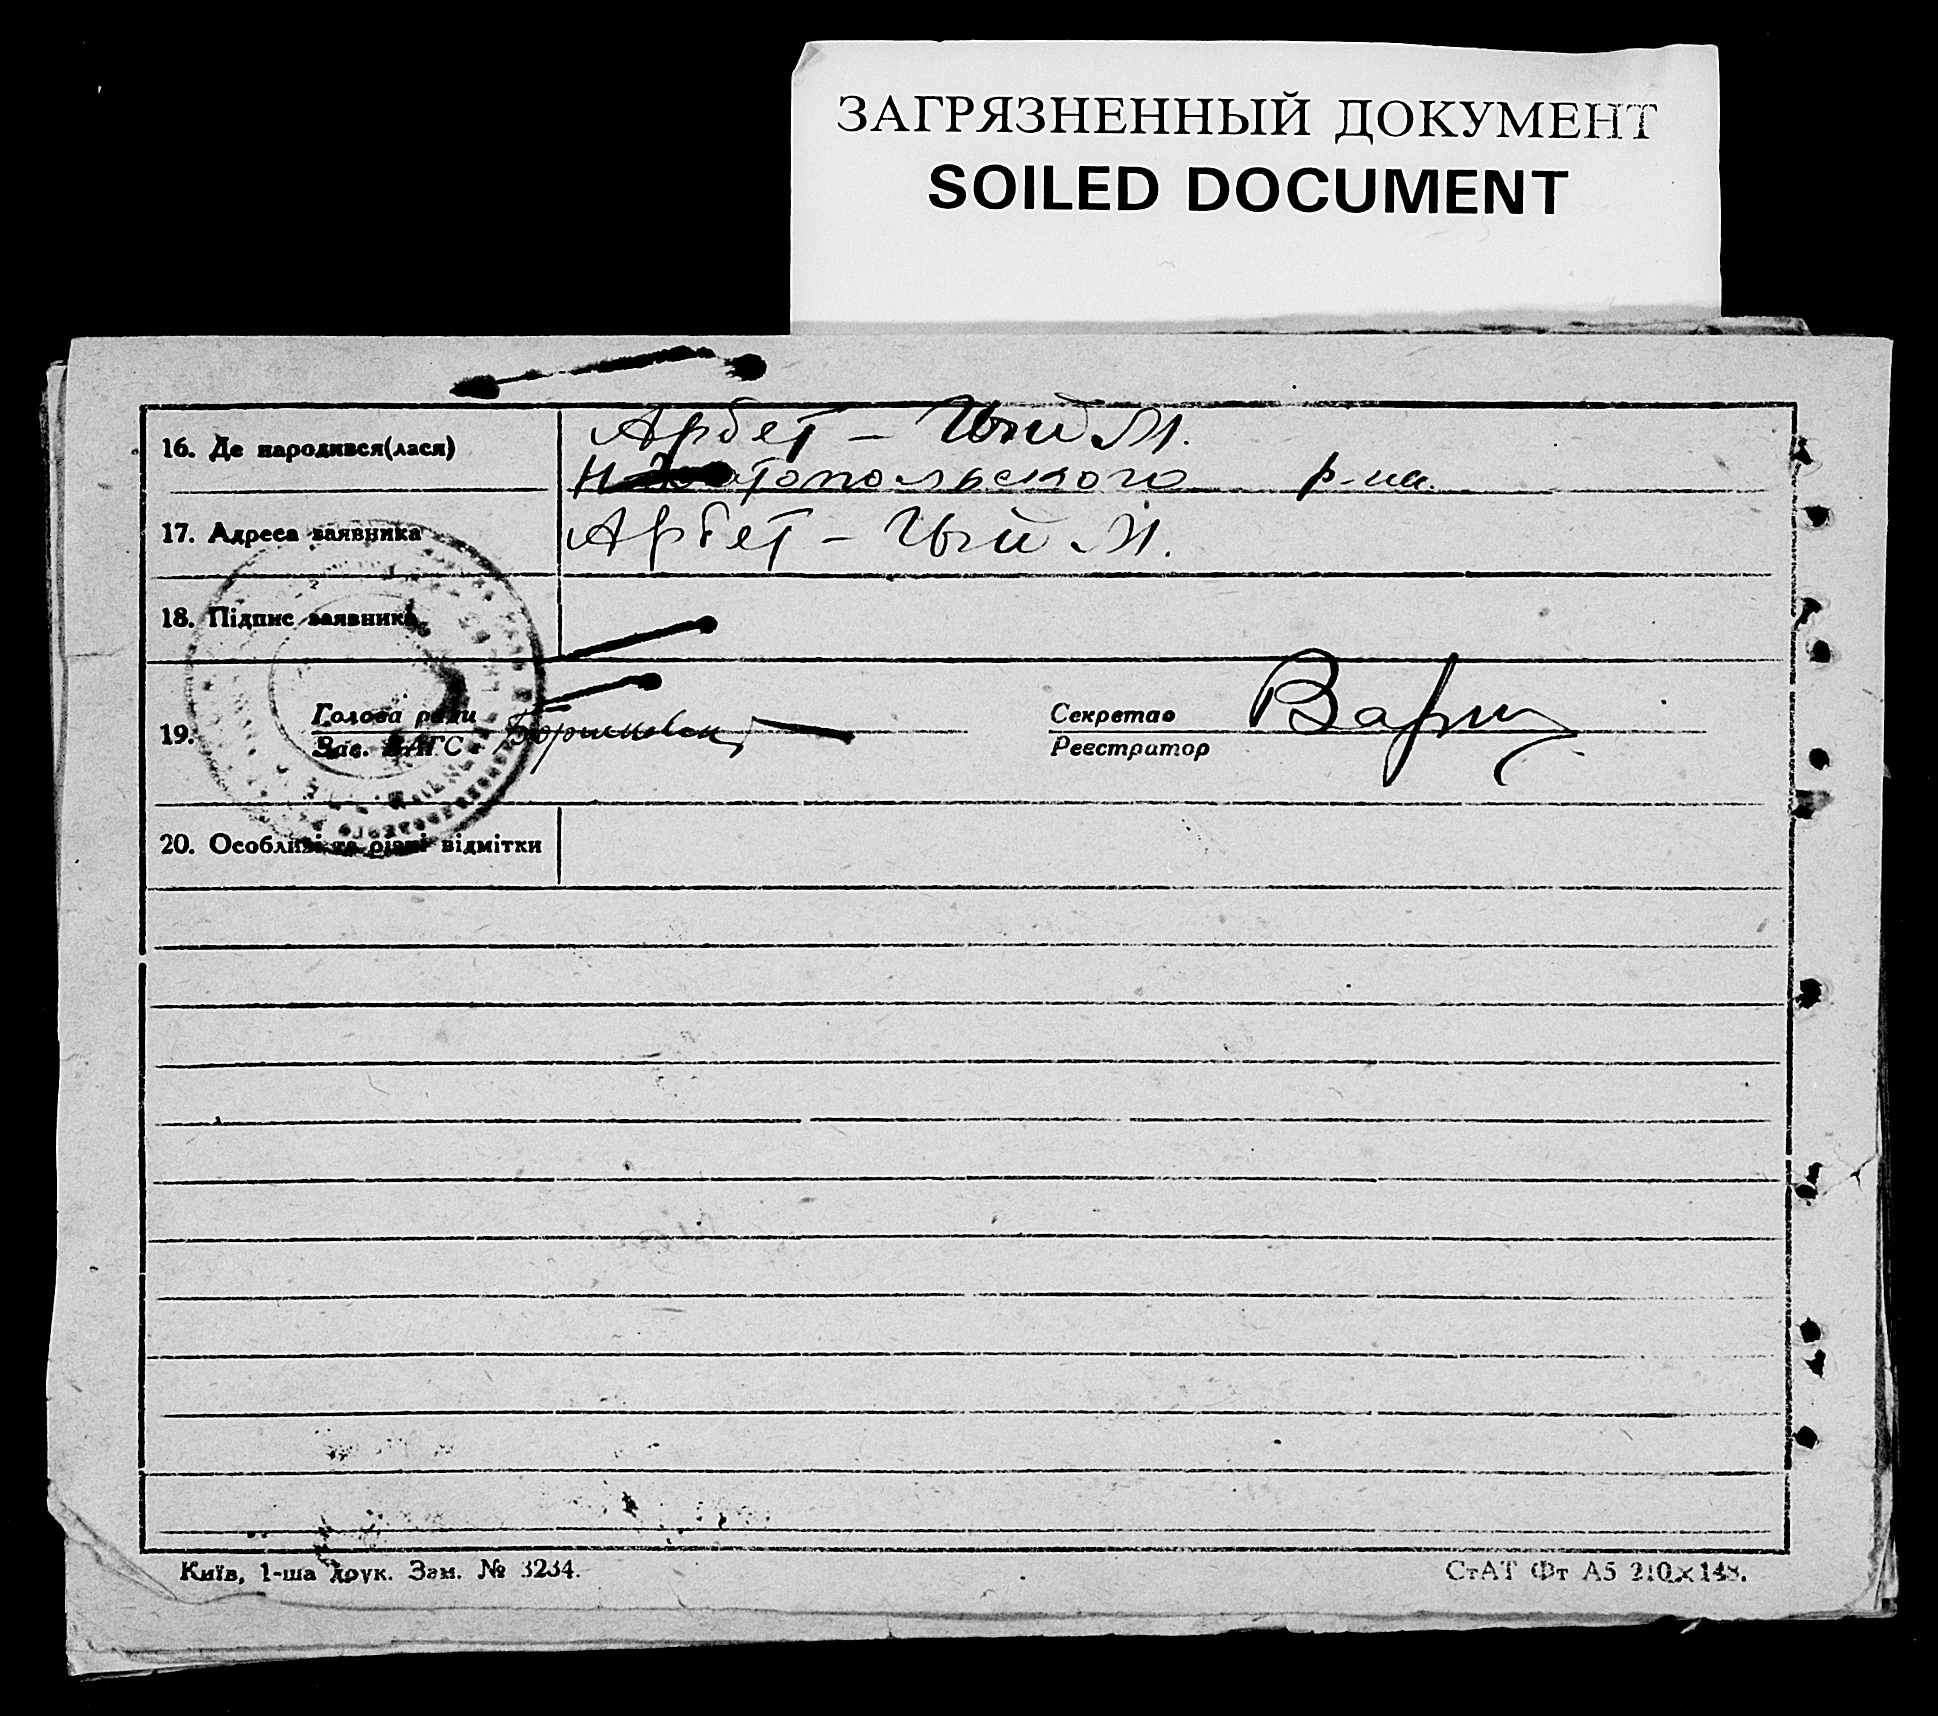 ЗАГРЯЗНЕННЫЙ ДОКУМЕНТ
SOILED DOCUMENT
16. Де народився(лася)
Арбет –
топольского р-на.
17. Адреса заявника
Арбет –
18. Підпис заявника
19.
Голова ради
Зав. ЗАГС
Секретар
Реєстратор
20. Особливі та різні відмітки
Київ, 1-ша друк. Зам. № 3234.
СтАТ Фт А5 210×148.